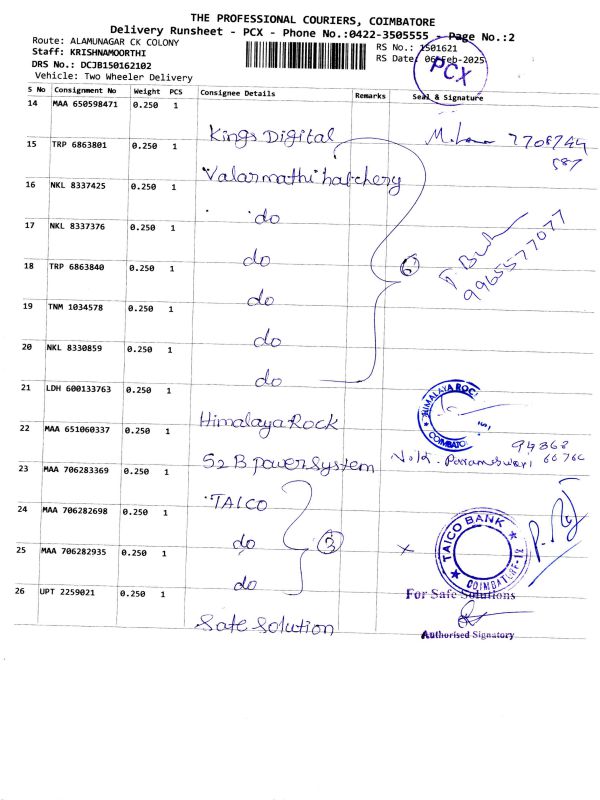 THE PROFESSIONAL COURIERS, COIMBATORE
Delivery Runsheet - PCX - Phone No.:0422-3505555 - Page No.:2
Route: ALAMUNAGAR CK COLONY
RS No.: 1501621
Staff: KRISHNAMOORTHI
RS Date: 06-Feb-2025
DRS No.: DCJB150162102
Vehicle: Two Wheeler Delivery
PCX
S No Consignment No Weight PCS Consignee Details Remarks Seal & Signature
14 MAA 650598471 0.250 1
Kings Digital
15 TRP 6863801 0.250 1
Valarmathi hatchery
16 NKL 8337425 0.250 1
do
17 NKL 8337376 0.250 1
do
9965577077
18 TRP 6863840 0.250 1
6
do
19 TNM 1034578 0.250 1
do
20 NKL 8330859 0.250 1
do
21 LDH 600133763 0.250 1
Himalaya Rock
HIMALAYA ROC
COIMBATO
22 MAA 651060337 0.250 1
S2B power System
Parameswari
23 MAA 706283369 0.250 1
TAICO
24 MAA 706282698 0.250 1
do
3
TAICO BANK
COIMBATORE-12
25 MAA 706282935 0.250 1
do
26 UPT 2259021 0.250 1
Safe Solution
For Safe Solutions
Authorised Signatory